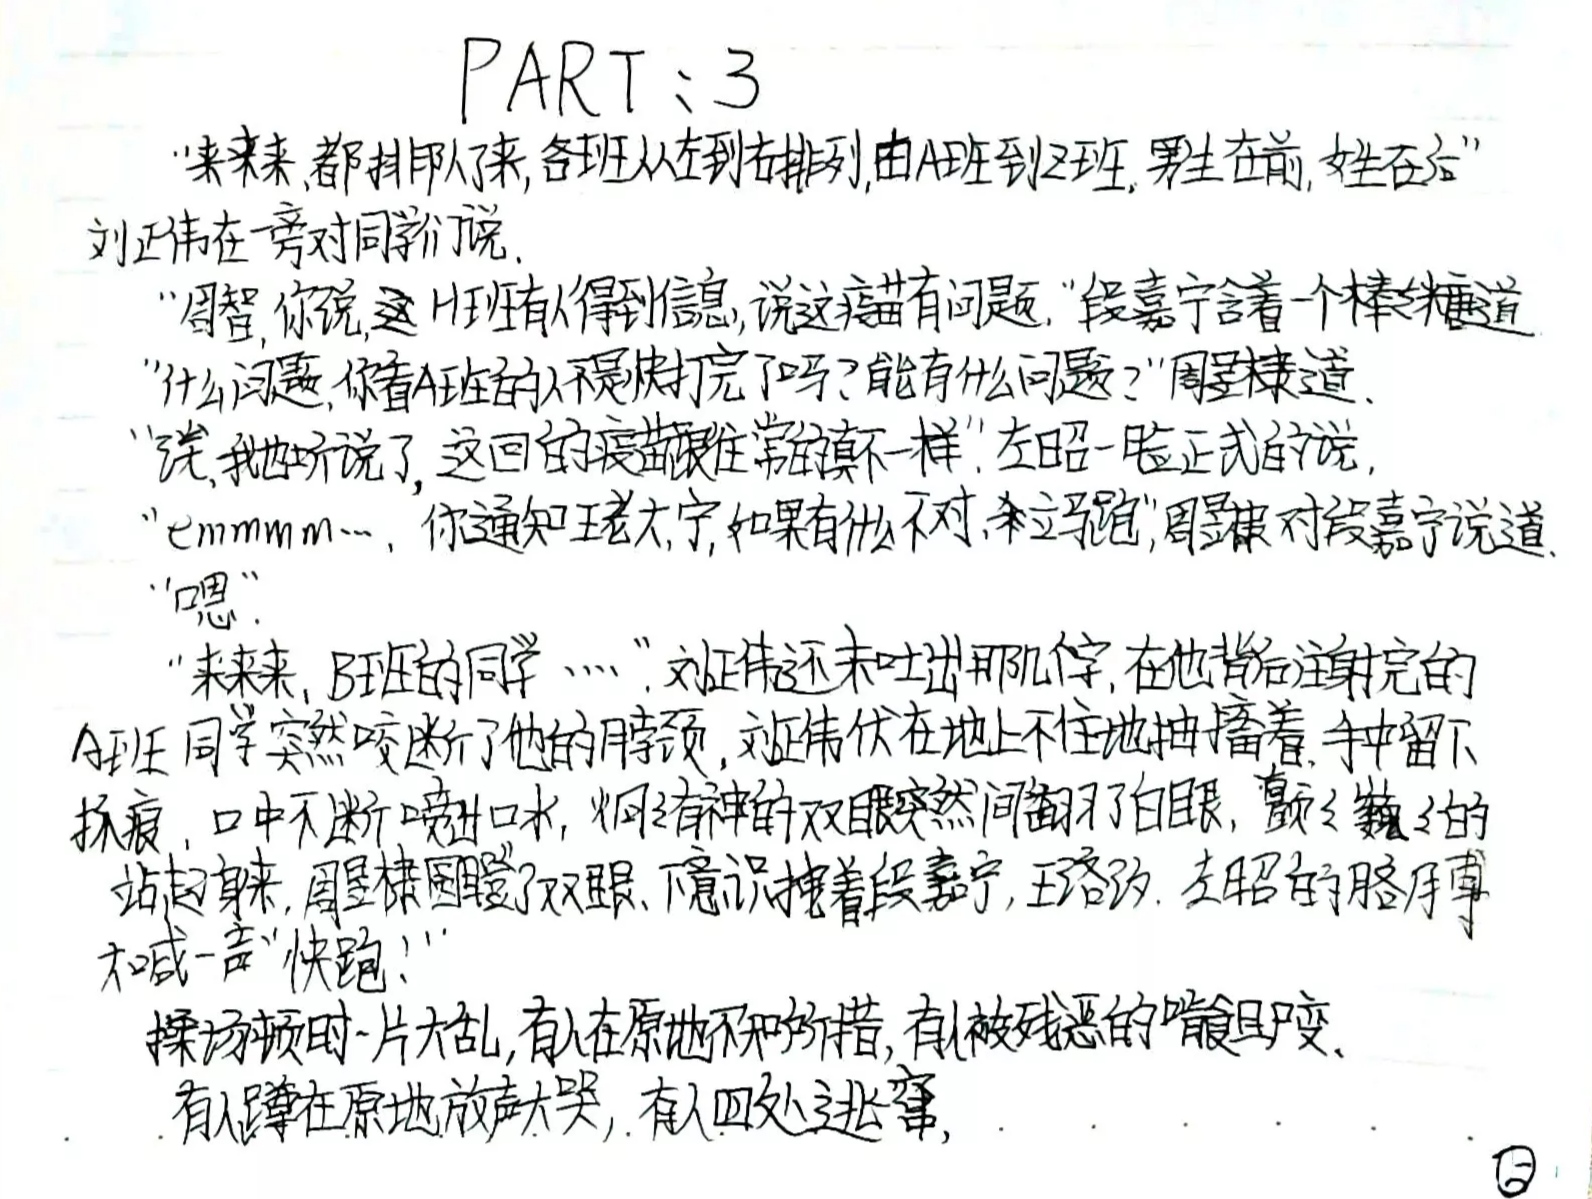 PART:3
"来来来,都排队了来,各班从左到右排列,由A班到Z班,男生在前,女生在后"
刘正伟在一旁对同学们说.
"周智,你说,这H班有人得到信息,说这疫苗有问题."段嘉宁含着一个棒棒糖道
"什么问题,你看A班的人不是快打完了吗?能有什么问题?"周昱棣道.
我也听说了,这回的疫苗跟往常的真不一样".左昭一脸正式的说.
"emmmm…,你通知王老大,宁,如果有什么不对,来立马跑",周昱棣对段嘉宁说道.
"嗯".
"来来来,B班的同学……".刘正伟还未吐出那几个字,在他背后注射完的
A班同学突然咬断了他的脖颈,刘正伟伏在地上不住地抽搐着.手中留下
抓痕,口中不断喷出口水,炯炯有神的双眼突然间翻了白眼,颤颤巍巍的
站起身来,周昱棣圆瞪了双眼、下意识拽着段嘉宁,王洛汐.左昭的胳膊
大喊一声"快跑!"
操场顿时一片大乱,有人在原地不知所措,有人被残恶的啃食
有人蹲在原地放声大哭,有人四处逃窜,